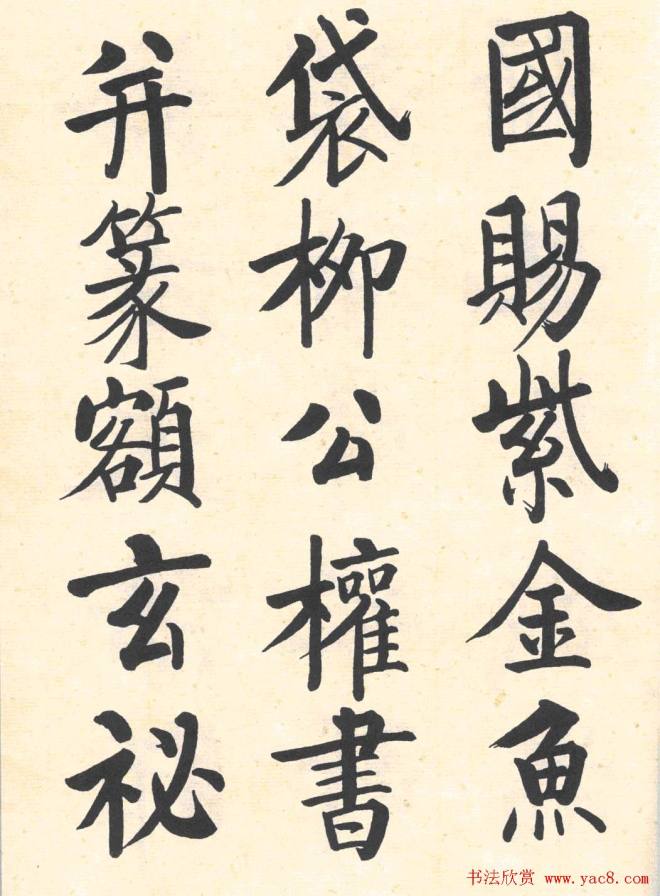 國賜紫金魚
袋柳公權書
并篆額玄
祕
书法欣赏 www.yac8.com